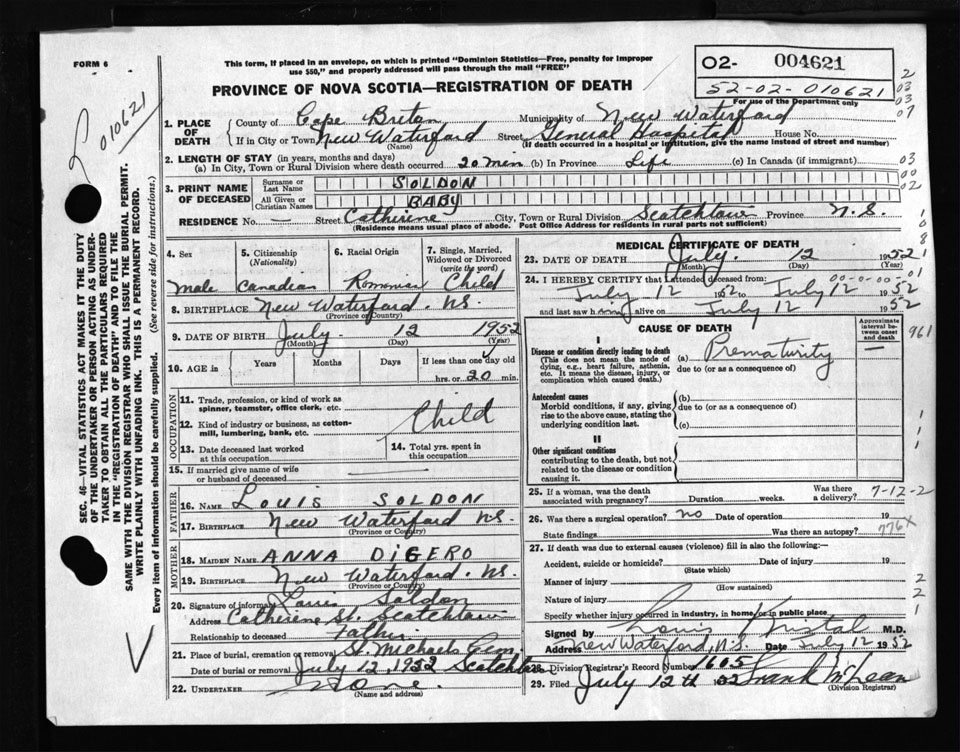 FORM 6
This form, if placed in an envelope, on which is printed "Dominion Statistics—Free, penalty for improper
use $50," and properly addressed will pass through the mail "FREE"
PROVINCE OF NOVA SCOTIA—REGISTRATION OF DEATH
O2- 004621
52-02-010621
For use of the Department only
010621
1. PLACE OF DEATH
County of Cape Breton Municipality of New Waterford
If in City or Town New Waterford Street General Hospital House No.
(Name) (If death occurred in a hospital or institution, give the name instead of street and number)
2. LENGTH OF STAY (in years, months and days)
(a) In City, Town or Rural Division where death occurred 20 min (b) In Province Life (c) In Canada (if immigrant)
3. PRINT NAME OF DECEASED
Surname or Last Name SOLDON
All Given or Christian Names BABY
RESIDENCE No. — Street Catherine City, Town or Rural Division Scotchtown Province N.S.
(Residence means usual place of abode. Post Office Address for residents in rural parts not sufficient)
4. Sex
male
5. Citizenship (Nationality)
Canadian
6. Racial Origin
7. Single, Married, Widowed or Divorced (write the word)
Child
8. BIRTHPLACE New Waterford. NS.
(Province or Country)
9. DATE OF BIRTH July 12 1952
(Month) (Day) (Year)
10. AGE in Years Months Days If less than one day old
hrs. or 20 min.
OCCUPATION
11. Trade, profession, or kind of work as spinner, teamster, office clerk, etc.
12. Kind of industry or business, as cotton-mill, lumbering, bank, etc.
Child
13. Date deceased last worked at this occupation
14. Total yrs. spent in this occupation
15. If married give name of wife or husband of deceased
FATHER
16. NAME LOUIS SOLDON
17. BIRTHPLACE New Waterford NS.
(Province or Country)
MOTHER
18. MAIDEN NAME ANNA DIGERO
19. BIRTHPLACE New Waterford. NS.
(Province or Country)
20. Signature of informant Louis Soldon
Address Catherine St. Scotchtown
Relationship to deceased Father
21. Place of burial, cremation or removal St. Michaels Cem
Date of burial or removal July 12, 1952 Scotchtown
22. UNDERTAKER None.
(Name and address)
MEDICAL CERTIFICATE OF DEATH
23. DATE OF DEATH July. 12 1952
(Month) (Day) (Year)
24. I HEREBY CERTIFY that I attended deceased from:
July 12 1952 to July 12 1952
and last saw him alive on July 12 1952
CAUSE OF DEATH
Approximate interval between onset and death
961
I
Disease or condition directly leading to death
(This does not mean the mode of dying, e.g., heart failure, asthenia, etc. It means the disease, injury, or complication which caused death.)
(a) Prematurity
due to (or as a consequence of)
Antecedent causes
Morbid conditions, if any, giving rise to the above cause, stating the underlying condition last.
(b)
due to (or as a consequence of)
(c)
II
Other significant conditions
contributing to the death, but not related to the disease or condition causing it.
25. If a woman, was the death associated with pregnancy? Duration weeks. Was there a delivery?
7-12-2
26. Was there a surgical operation? no Date of operation 19
State findings Was there an autopsy?
776X
27. If death was due to external causes (violence) fill in also the following:—
Accident, suicide or homicide? Date of injury 19
(State which)
Manner of injury
(How sustained)
Nature of injury
Specify whether injury occurred in industry, in home, or in public place
Signed by Louis Kristal M.D.
Address New Waterford, N.S. Date July 12 1952
28. Division Registrar's Record Number 1605
29. Filed July 12th 52 Frank McLean
(Division Registrar)
SEC. 46—VITAL STATISTICS ACT MAKES IT THE DUTY
OF THE UNDERTAKER OR PERSON ACTING AS UNDER-
TAKER TO OBTAIN ALL THE PARTICULARS REQUIRED
IN THE "REGISTRATION OF DEATH" AND TO FILE THE
SAME WITH THE DIVISION REGISTRAR WHO SHALL ISSUE THE BURIAL PERMIT.
WRITE PLAINLY WITH UNFADING INK. THIS IS A PERMANENT RECORD.
Every item of information should be carefully supplied. (See reverse side for instructions.)